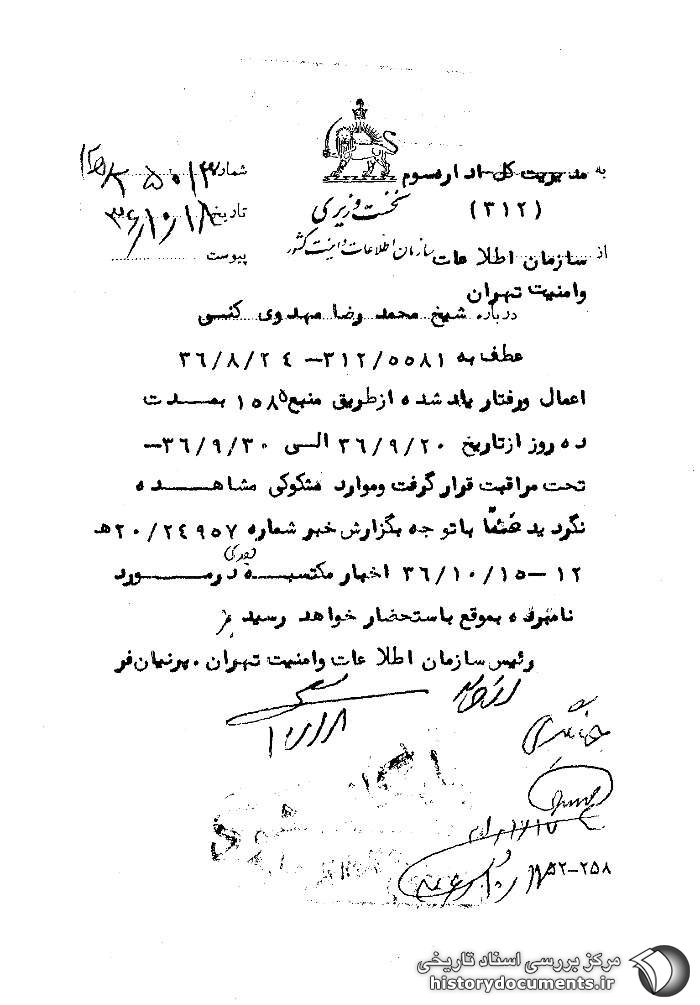 به مدیریت کل اداره سوم
(۳۱۲)
نخست وزیری
سازمان اطلاعات و امنیت کشور
شماره
تاریخ ۳۶/۱۰/۱۸
پیوست
از سازمان اطلاعات
وامنیت تهران
درباره شیخ محمد رضا مهدوی کنسی
عطف به ۳۱۲/۵۵۸۱ – ۳۶/۸/۲۴
اعمال ورفتار یاد شده ازطریق منبع ۱۵۸۵ بمدت
ده روز ازتاریخ ۳۶/۹/۲۰ الی ۳۶/۹/۳۰ –
تحت مراقبت قرار گرفت وموارد مشکوکی مشاهده
نگردید ضمناً باتوجه بگزارش خبر شماره ۲۰/۲۴۹۵۷ ه
۱۲ – ۳۶/۱۰/۱۵ اخبار مکتسبه درمورد
نامبرده بموقع باستحضار خواهد رسید
رئیس سازمان اطلاعات وامنیت تهران . پرنیان فر
۵۲–۲۵۸
مرکز بررسی اسناد تاریخی
historydocuments.ir